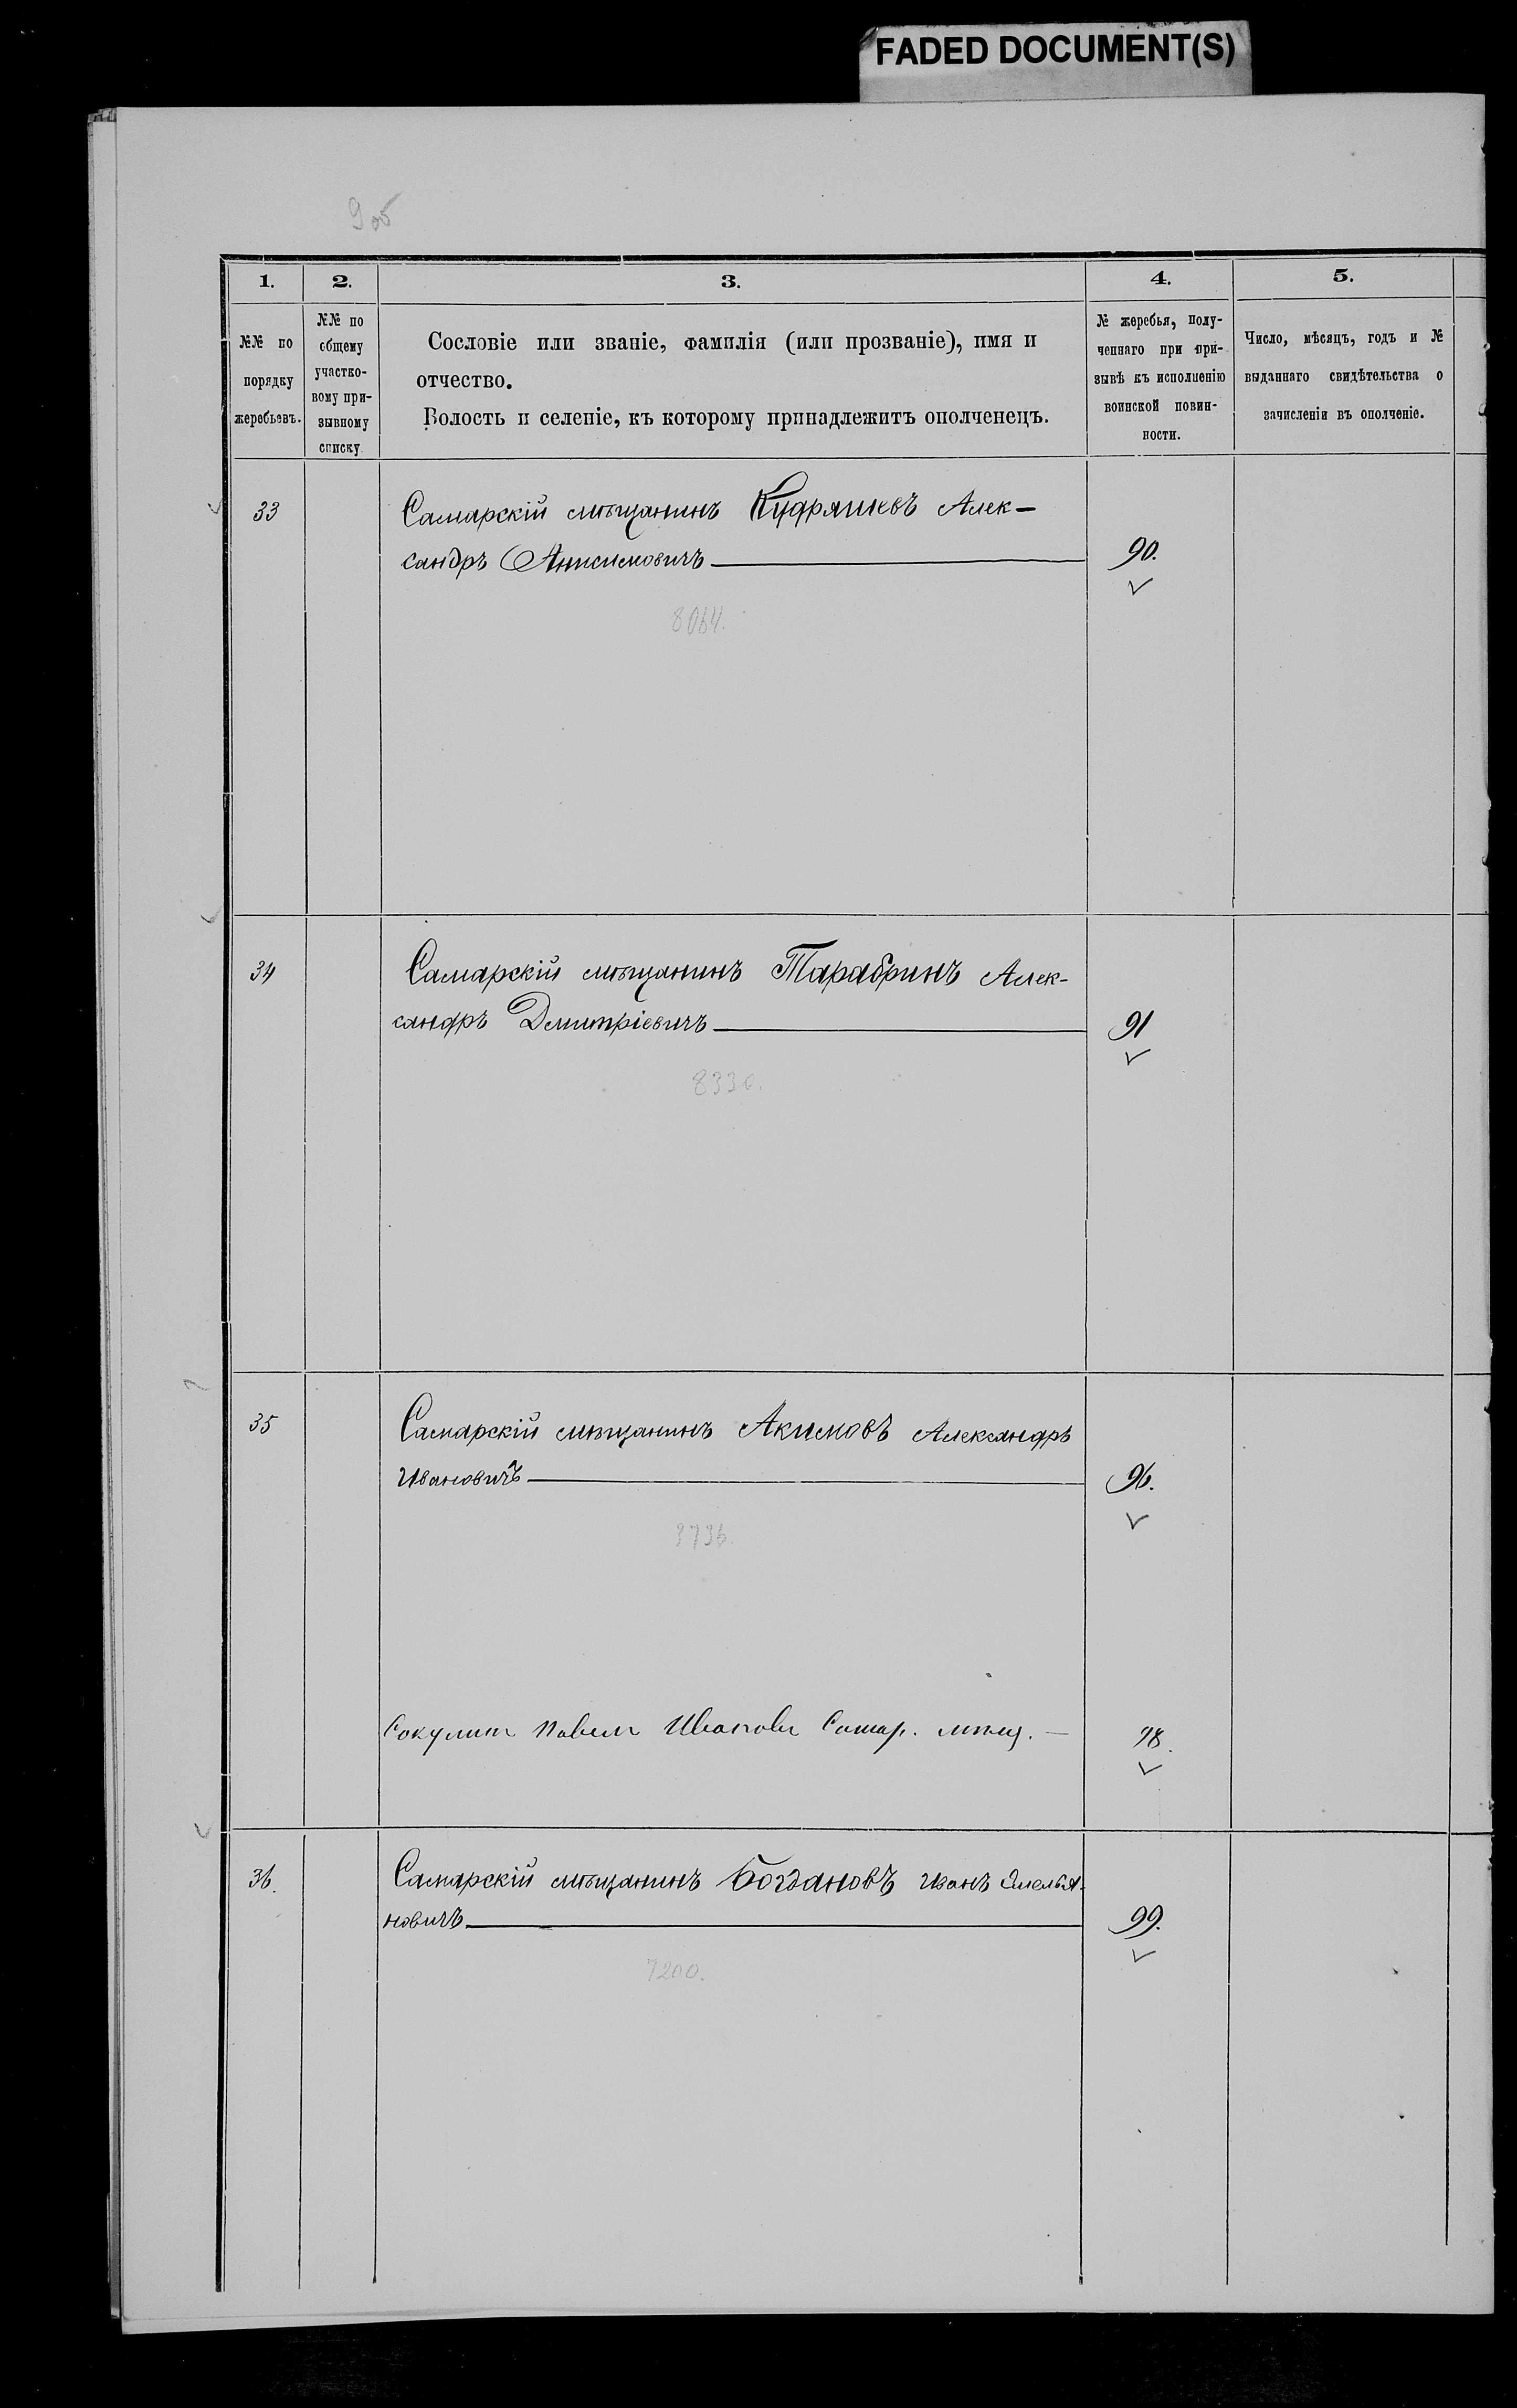 FADED DOCUMENT(S)
9об
1. 2. 3. 4. 5.
№№ по порядку жеребьевъ.
№№ по общему участко-
вому при-
зывному списку
Сословіе или званіе, фамилія (или прозваніе), имя и
отчество.
Волость и селеніе, къ которому принадлежитъ ополченецъ.
№ жеребья, полу-
ченнаго при при-
зывѣ къ исполненію
воинской повин-
ности.
Число, мѣсяцъ, годъ и №
выданнаго свидѣтельства о
зачисленіи въ ополченіе.
33 Самарскій мѣщанинъ Кудряшевъ Алек-
сандръ Анисимовичъ 90.
8064.
34 Самарскій мѣщанинъ Тарабринъ Алек-
сандръ Димитріевичъ 91
8330.
35 Самарскій мѣщанинъ Акимовъ Александръ
Ивановичъ 96.
3736
Павелъ Ивановъ Самар. мѣщ. — 98.
36. Самарскій мѣщанинъ Богдановъ Иванъ Емелья-
новичъ 99.
7200.